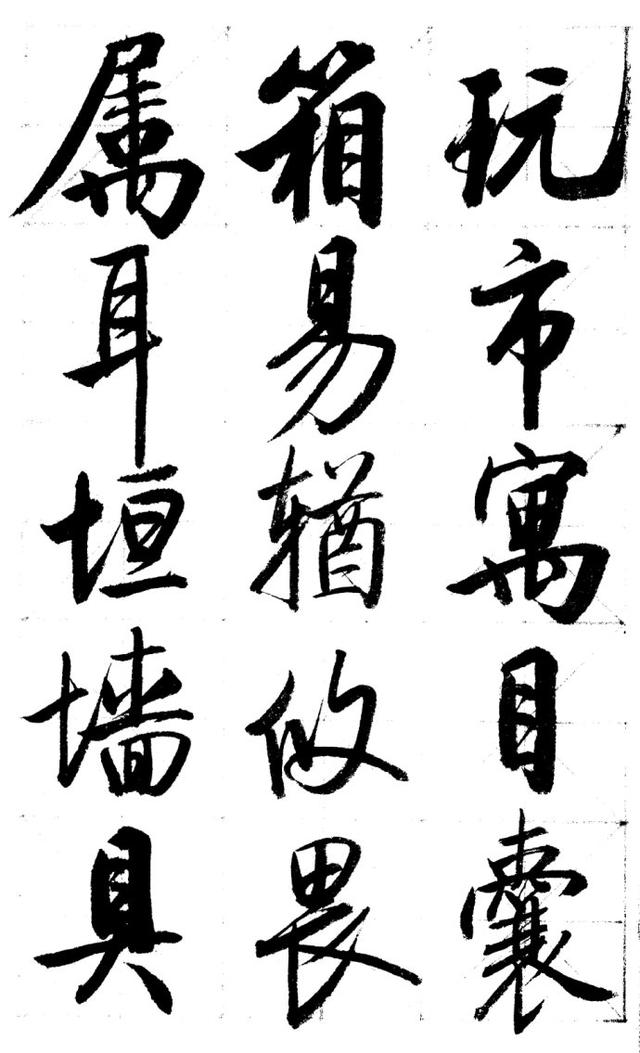 玩市寓目囊
箱易輶攸畏
属耳垣墙具